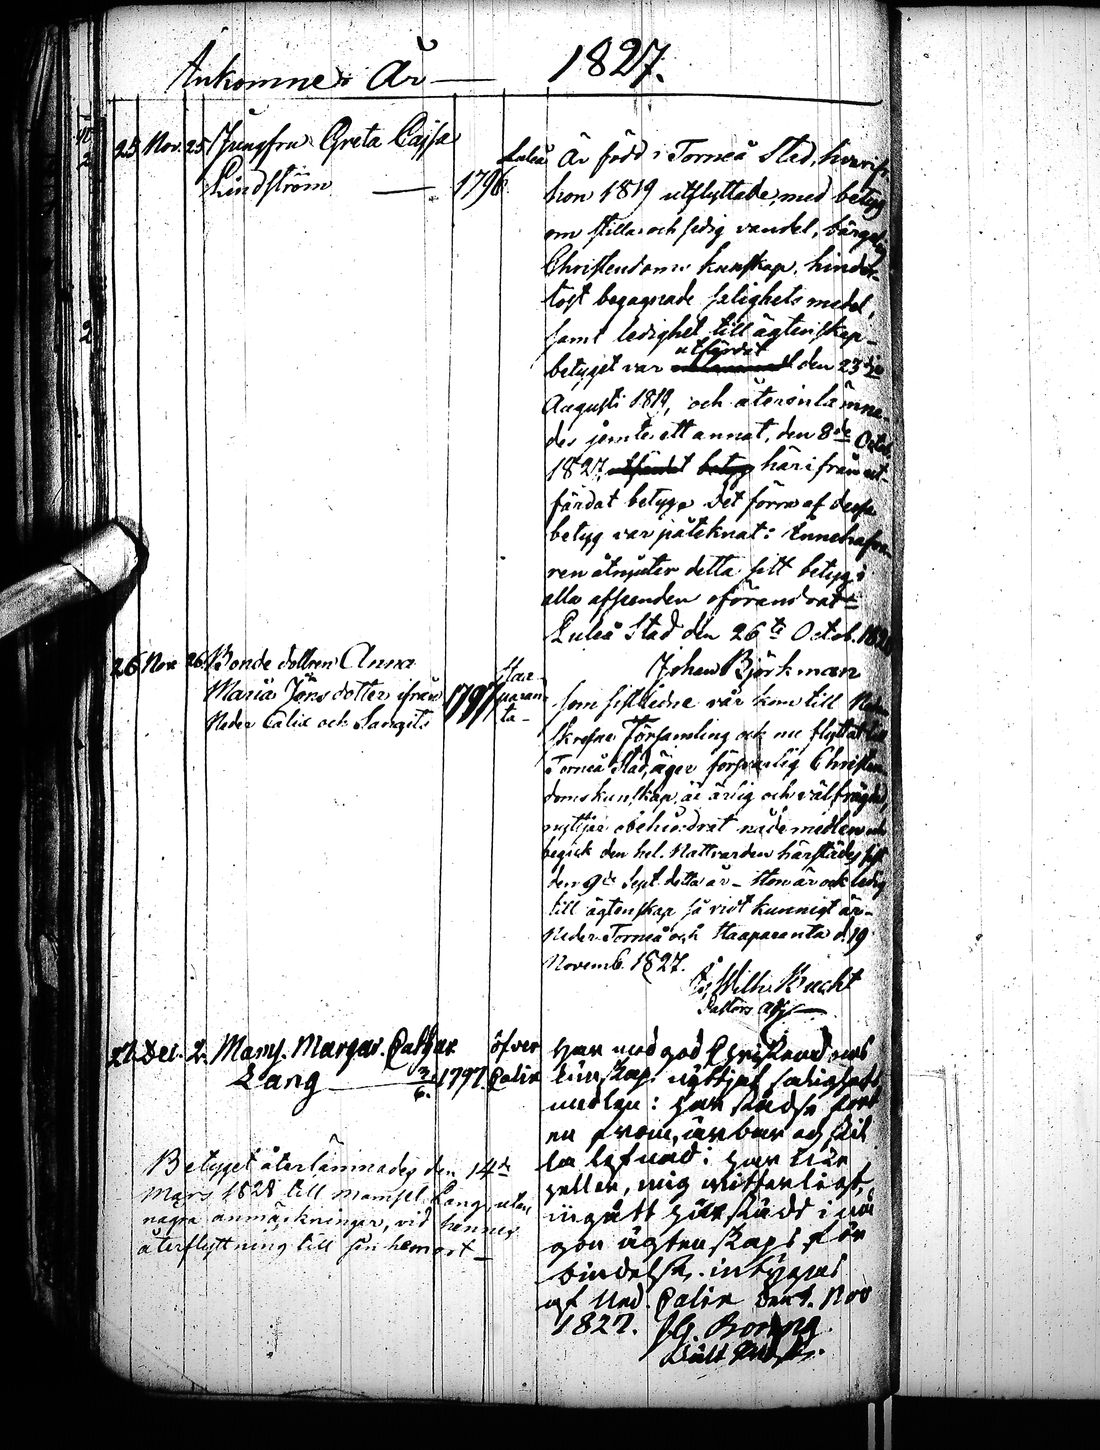 Ankomne År — 1827.
25 Nov. 25 Jungfru Greta Cajsa
Lindström — 1796
Luleå
Är född i Torneå Stad, hvarifr.
hon 1819 utflyttade, med betyg
om stilla och sedig vandel, bärgelig
Christendoms kunskap, hinder-
löst begagnade salighets medel,
samt ledighet till ägtenskap -
betyget var utfärdat den 23 de
Augusti 1819, och återinlämna-
des jemte ett annat, den 8de Octob.
1827, utfärdat betyg härifrån ut-
färdat betyg. Det förra af dessa
betyg var påteknat: Innehafva-
ren åtnjuter detta sitt betyg i
alla afseenden oförändrat
Luleå Stad den 26te Octob. 182
Johan Björkman
26 Nov 26 Bonde dottren Anna
Maria Jönsdotter ifrån
Neder Calix och Sangits
1797
Har-
paran
ta -
som sistledne vår kom till Neder
Församling och nu flyttat till
Torneå Stad, äger försvarlig Christen-
doms kunskap, är ärlig och välfrägdad,
nyttjar obehindrat nådemedlen och
begick den hel. Nattvarden härstädes sist
den 9de Sept. detta år - Hon är ock ledig
till ägtenskap så vidt kunnigt är -
Neder Torneå och Haaparanta d. 19
Novemb. 1827.
Wilh. Bucht
Pastors Adj.
27. Dec. 2. Mams. Margar. Cathar.
Lang — 3/6. 1797.
öfver
Calix
Har med god Christendoms
kunskap nyttjat salighets
medlen: har städse fört
en from, ärbar och stil
la lefnad: har icke
heller, mig witterligt,
ingått härstädes i nå
gon ägtenskaps för
bindelse. intygas
af Ned. Calix den 9. Nov
1827. J.G. Boring
Betyget återlämnades den 14de
Mars 1828 till Mamsel Lang, utan
några anmärkningar, vid hennes
återflyttning till sin hemort —
2
2